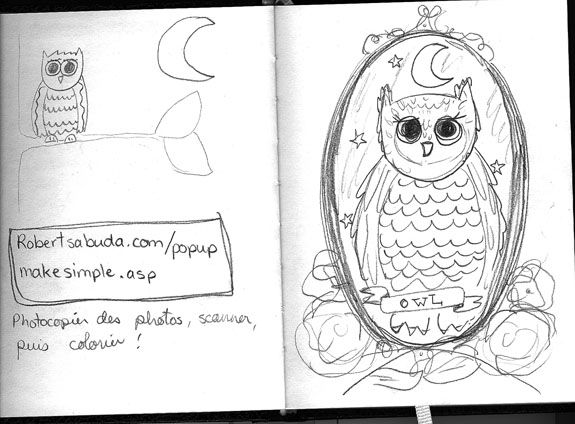 Robertsabuda.com/popup
makesimple.asp
Photocopier des photos, scanner,
puis colorier !
OWL